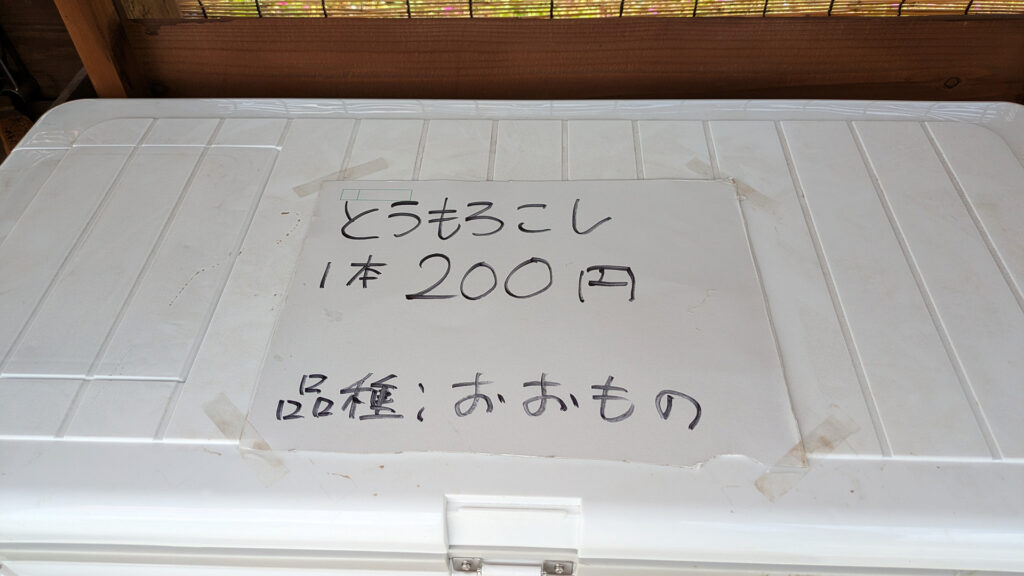 とうもろこし
1本 200円
品種:おおもの